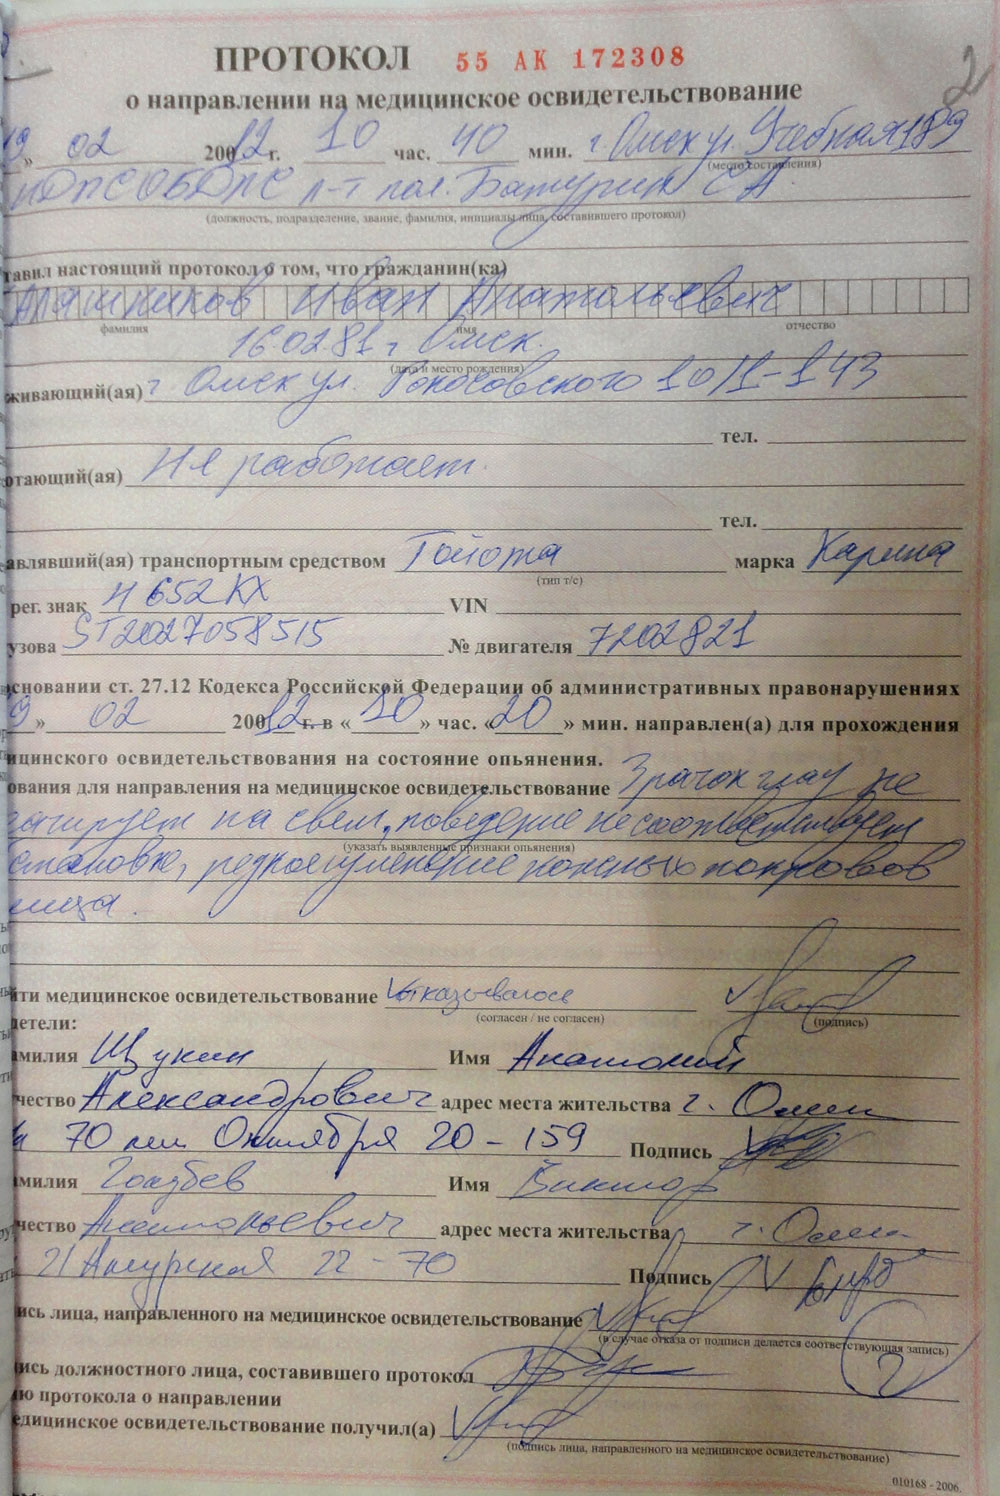 ПРОТОКОЛ 55 АК 172308
2
о направлении на медицинское освидетельствование
9 » 02 200 12 г. 10 час. 40 мин. г. Омск ул. Учебная 189
(место составления)
ДПС ОБДПС л-т пол. Батурин С А
(должность, подразделение, звание, фамилия, инициалы лица, составившего протокол)
тавил настоящий протокол о том, что гражданин(ка)
Иван Анатольевич
фамилия имя отчество
160281 г Омск.
(дата и место рождения)
живающий(ая) г Омск ул. Рокосовского 10/1-143
тел.
отающий(ая) Не работает.
тел.
авлявший(ая) транспортным средством Тойота марка Карина
(тип т/с)
рег. знак Н 652 КХ VIN
узова ST2027058515 № двигателя 7202821
основании ст. 27.12 Кодекса Российской Федерации об административных правонарушениях
9 » 02 200 12 г. в « 10 » час. « 20 » мин. направлен(а) для прохождения
ицинского освидетельствования на состояние опьянения.
ования для направления на медицинское освидетельствование Зрачок глаз не
еагирует на свет, поведение не соответствует
(указать выявленные признаки опьянения)
становке, резкое изменение кожных покровов
лица.
йти медицинское освидетельствование отказываюсь
(согласен / не согласен) (подпись)
детели:
амилия Щукин Имя Анатолий
чество Александрович адрес места жительства г. Омск
70 лет Октября 20 - 159 Подпись
амилия Голубев Имя Виктор
чество Анатольевич адрес места жительства г. Омск
21 Амурская 22 - 70 Подпись
ись лица, направленного на медицинское освидетельствование
(в случае отказа от подписи делается соответствующая запись)
2
ись должностного лица, составившего протокол
ию протокола о направлении
едицинское освидетельствование получил(а)
(подпись лица, направленного на медицинское освидетельствование)
010168 - 2006.